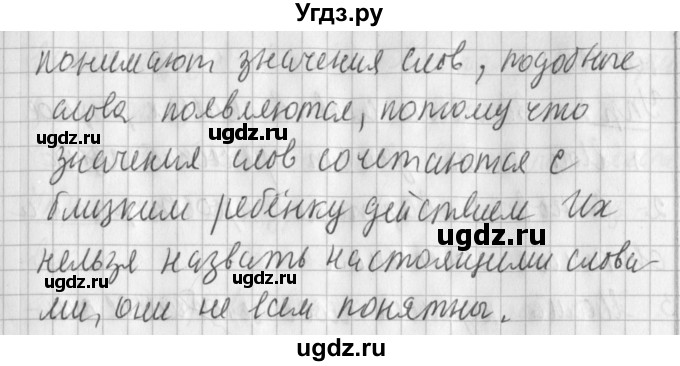 Угдз.ру
понимают значения слов, подобные
слова появляются, потому что
ugdz.ru ugdz.ru
значения слов сочетаются с
близким ребёнку действием Их
ugdz.ru
нельзя назвать настоящими слова-
ugdz.ru
ми, они не всем понятны.
ugdz.ru